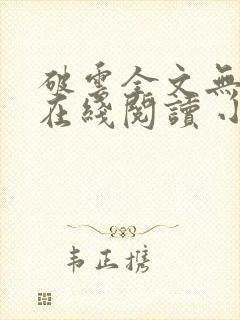 破雲全文無
在綫閱讀小
韦正携